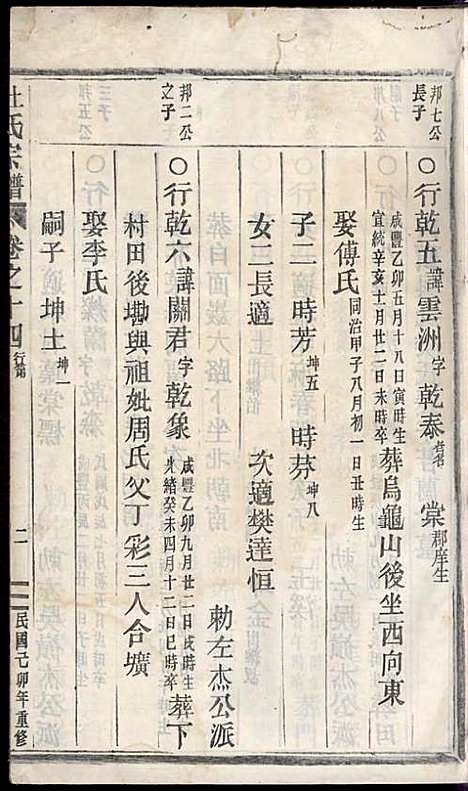 邦七公長子
○行乾五諱雲洲字乾泰考名棠郡庠生
咸豐乙卯五月十八日寅時生
宣統辛亥十月廿二日未時卒
葬烏龜山後坐西向東
娶傅氏同治甲子八月初一日丑時生
子二 時芳坤五 時芬坤八
女二長適 次適樊達恒
勅左杰公派
邦二公之子
○行乾六諱關君字乾象
咸豐乙卯九月廿二日戌時生
光緒癸未四月十二日巳時卒
葬下
村田後塝與祖妣周氏父丁彩三人合壙
娶李氏
嗣子 坤土坤一
杜氏宗譜 卷之十四 行第 二 民國己卯年重修